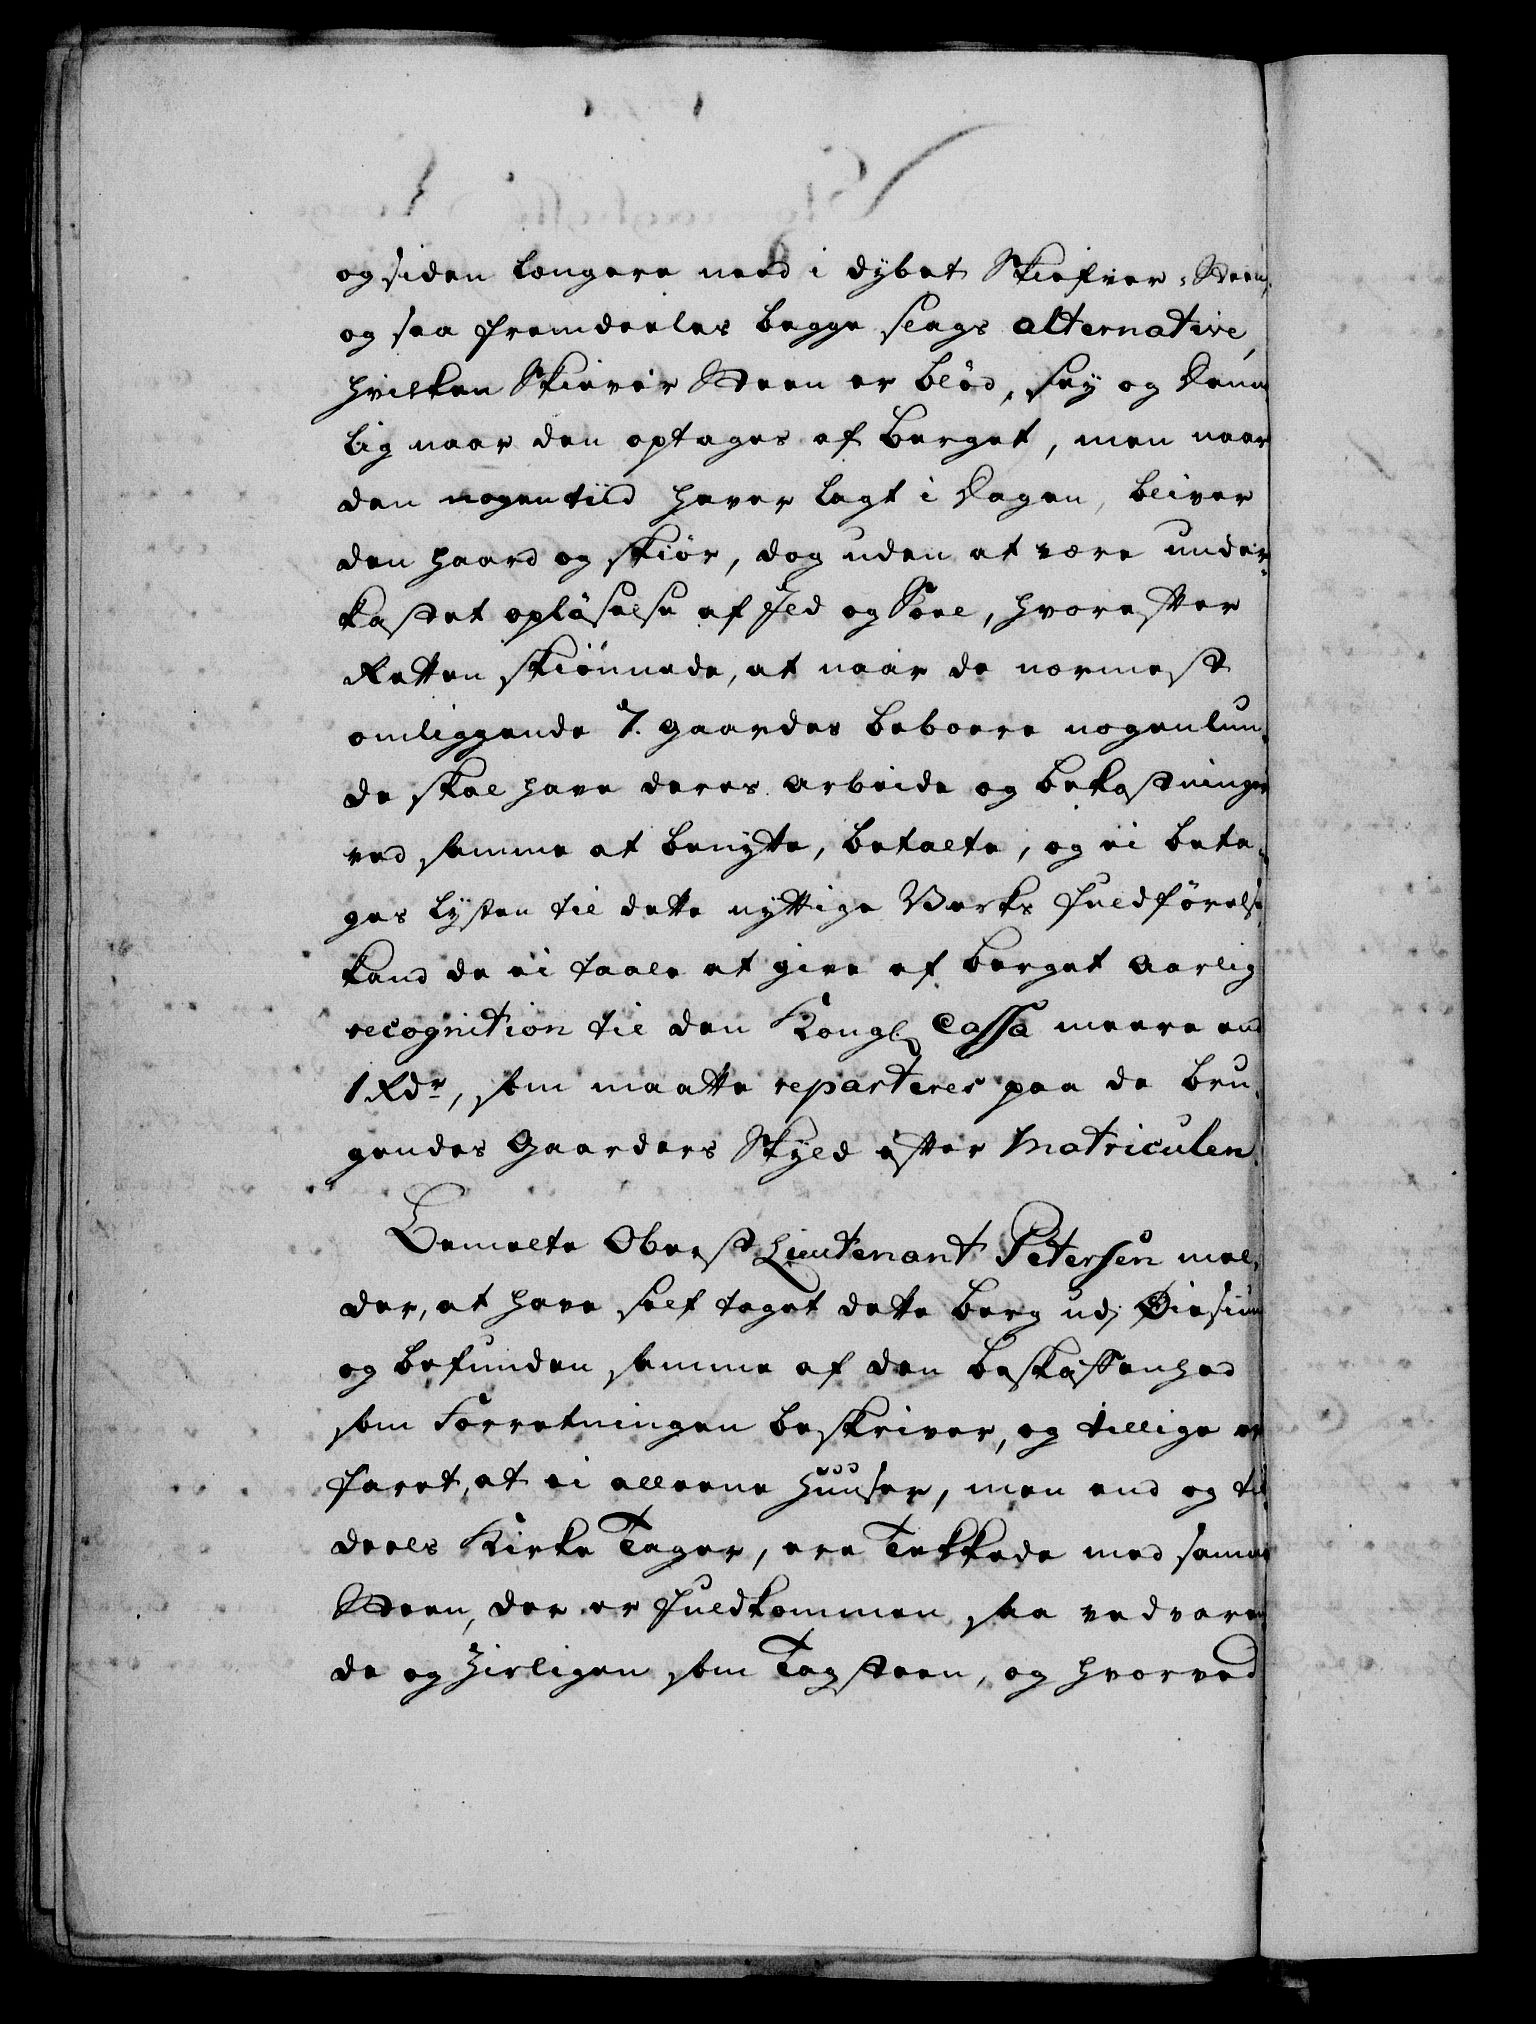 og siden længere need i dybet Skiefver-Steen,
og saa fremdeeles begge slags alternative,
hvilken Skiever Steen er blöd, sey og
lig naar den optages af Berget, men naar
den nogen tiid haver lagt i Dagen, bliver
den haard og skiör, dog uden at være under-
kastet oplöselse af Ild og Soel, hvorefter
Retten skiönnede, at naar de nærmest
omliggende 7. gaardes beboere nogenlun-
de skal have deres arbeide og bekostninger
ved samme at benytte, betalte, og ei beta-
ges lysten til dette nyttige Verks fuldförelse,
kand de ei taale at give af berget aarlig
recognition til den Kongl. Cassa meere end
1 Rdr, som maatte reparteres paa de bru-
gendes Gaarders Skyld efter Matriculen.
Bemelte Oberst Lieutenant Petersen mel-
der, at have self taget dette berg udj Öiesiun
og befunden samme af den beskaffenhed
som Forretningen beskriver, og tillige er-
faret, at ei alleene Huuser, men end og til
deels Kirke Tager, ere Tekkede med samme
Steen, der er fuldkommen saa vedvaren-
de og zirligen som Tagsteen, og hvorved